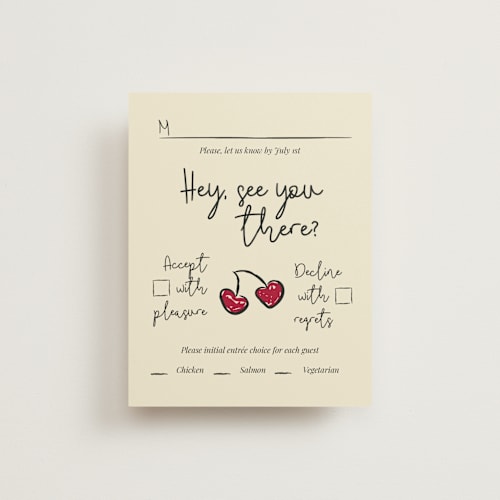 M
Please, let us know by July 1st
Hey, see you
there?
Accept
with
pleasure
Decline
with
regrets
Please initial entrée choice for each guest
Chicken Salmon Vegetarian